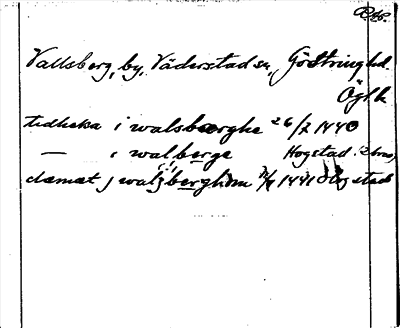 Vallsberg, by, Väderstad sn, Göstring hd.
Ögl.
tidheka i walsberghe 26/2 1440
— i walberge Hogstad (2 brev)
clemæt j walzberghom 1441 Hogstad